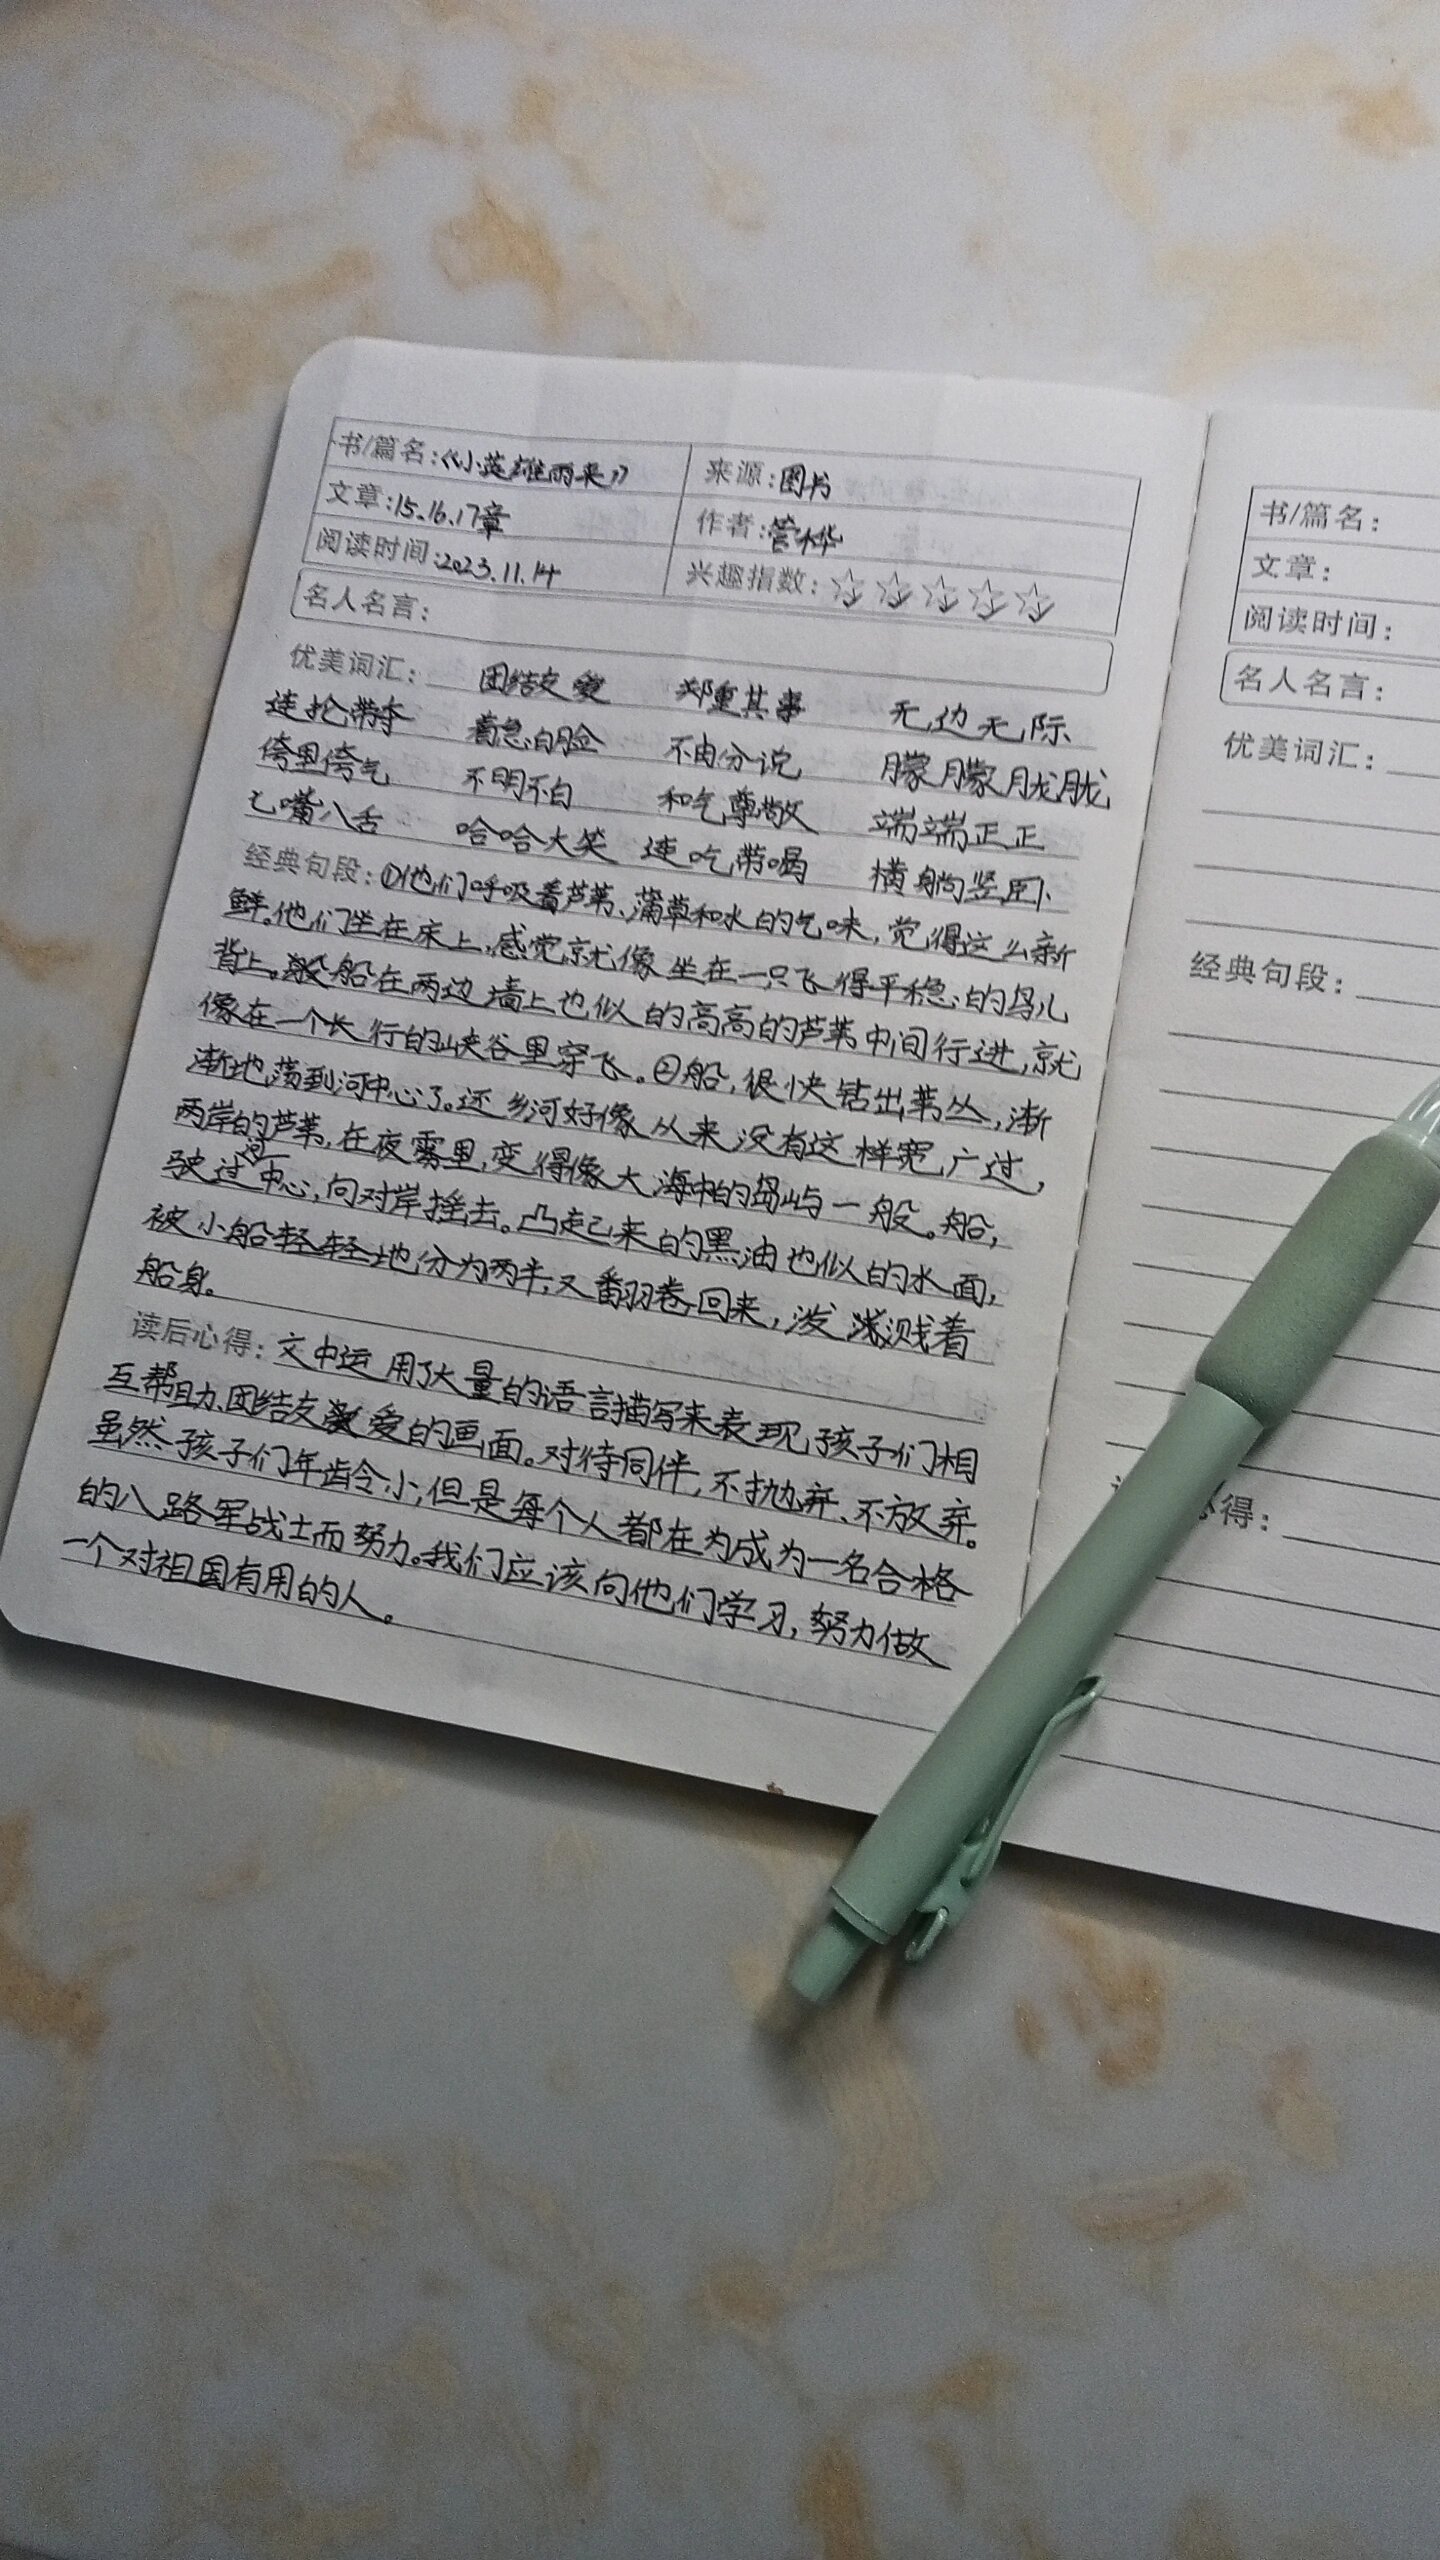 书/篇名:《小英雄雨来》 来源:图书
文章:15.16.17章 作者:管桦
阅读时间:2023.11.14 兴趣指数:☆☆☆☆☆
名人名言:
优美词汇: 团结友爱 郑重其事 无边无际
连抢带夺 着急白脸 不由分说 朦朦胧胧
侉里侉气 不明不白 和气尊敬 端端正正
七嘴八舌 哈哈大笑 连吃带喝 横躺竖卧
经典句段:①他们呼吸着芦苇、蒲草和水的气味,觉得这么新
鲜。他们坐在床上,感觉就像坐在一只飞得平稳的鸟儿
背上。船在两边墙上也似的高高的芦苇中间行进,就
像在一个长行的峡谷里穿飞。②船,很快钻出苇丛,渐
渐地荡到河中心了。还乡河好像从来没有这样宽广过,
两岸的芦苇,在夜雾里,变得像大海中的岛屿一般。船,
驶过河中心,向对岸摇去。凸起来的黑油也似的水面,
被小船轻轻地分为两半,又翻卷回来,泼溅着
船身。
读后心得:文中运用了大量的语言描写来表现孩子们相
互帮助、团结友爱的画面。对待同伴,不抛弃、不放弃。
虽然孩子们年龄小,但是每个人都在为成为一名合格
的八路军战士而努力。我们应该向他们学习,努力做
一个对祖国有用的人。
书/篇名:
文章:
阅读时间:
名人名言:
优美词汇:
经典句段:
心得: